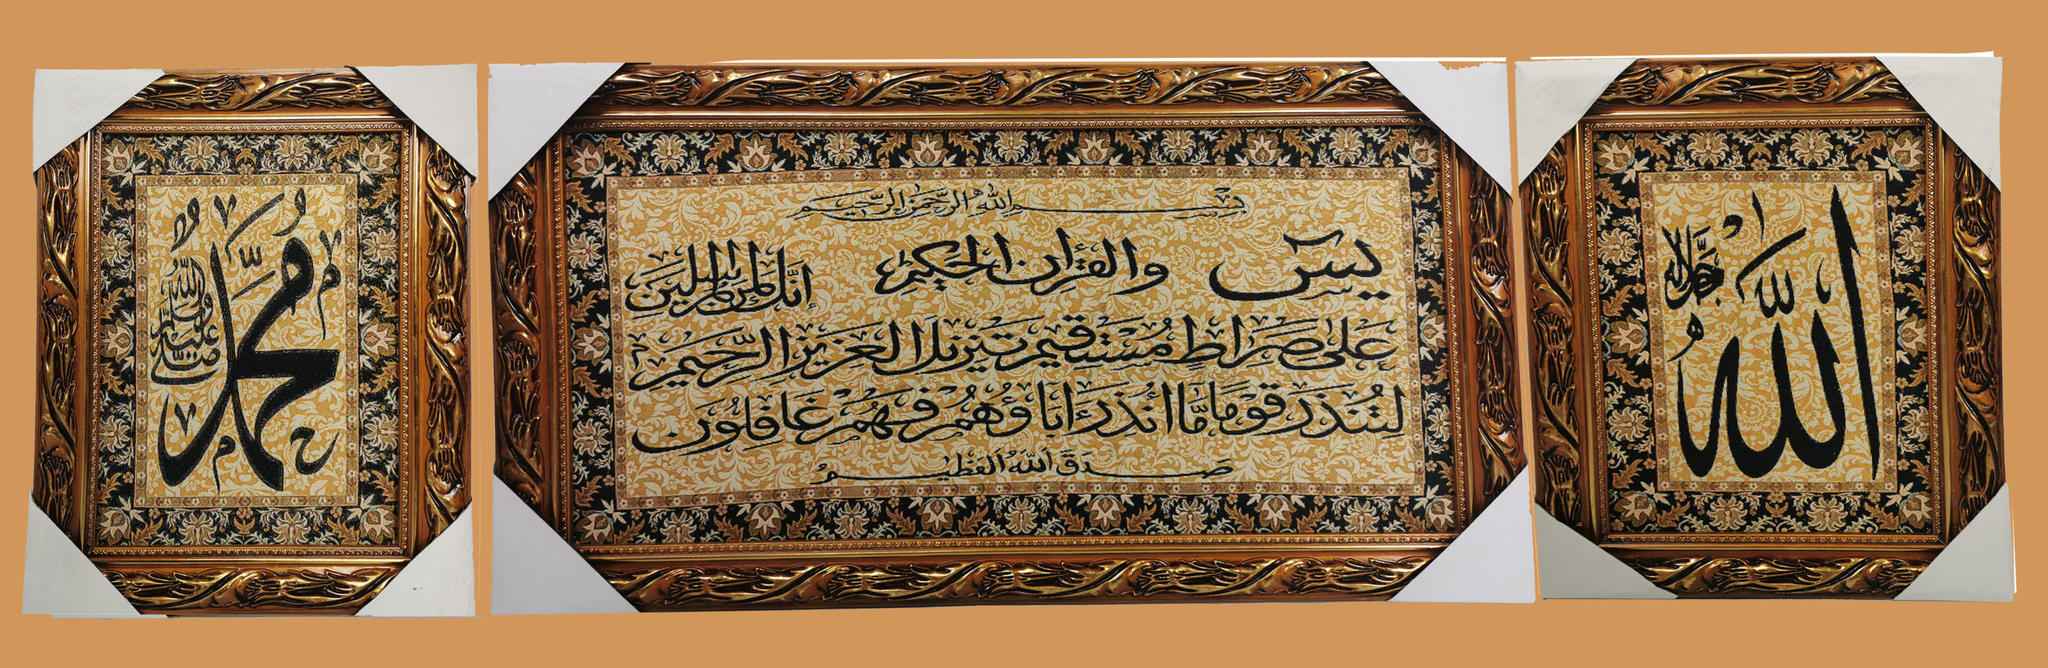 الله
جل جلاله
بسم الله الرحمن الرحيم
يس والقرآن الحكيم إنك لمن المرسلين
على صراط مستقيم تنزيل العزيز الرحيم
لتنذر قوما ما أنذر آباؤهم فهم غافلون
صدق الله العظيم
محمد
صلى الله عليه وسلم